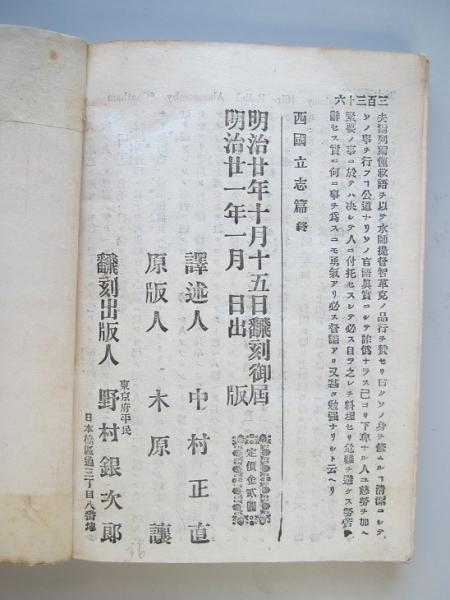 三百三十六
夫爾列爾僅數語ヲ以テ水師提督智革克ノ品行ヲ賛セリ曰クソノ身ヲ修ムルヿ清潔ニシテ
ソノ事ヲ行フヿ公道ナリソノ言語眞實ニシテ詐僞ナラス己ヨリ下卑ナル人ニ慈勞ヲ加ヘ
緊要ノ事ニ於テハ決シテ人ニ付托セスシテ必ス自ラ之レヲ料理セリ危難ヲ避ケス勞苦ヲ
辭セス實ニ何ノ事ヲ爲スニモ勇氣アリ必ス習練アリ又甚タ勉强ナリシト云ヘリ
西國立志篇 終
明治廿年十月十五日飜刻御屆
明治廿一年一月 日出 版
定價金貳圓
譯述人 中村正直
原版人 木原 讓
飜刻出版人 野村銀次郎
東京府平民
日本橋區通三丁目八番地
36